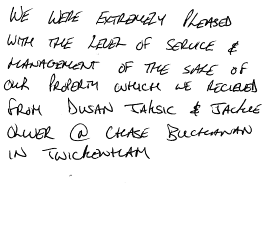 WE WERE EXTREMELY PLEASED
WITH THE LEVEL OF SERVICE &
MANAGEMENT OF THE SALE OF
OUR PROPERTY WHICH WE RECIEVED
FROM DUSAN TAKSIC & JACKIE
OLIVER @ CHASE BUCHANAN
IN TWICKENHAM